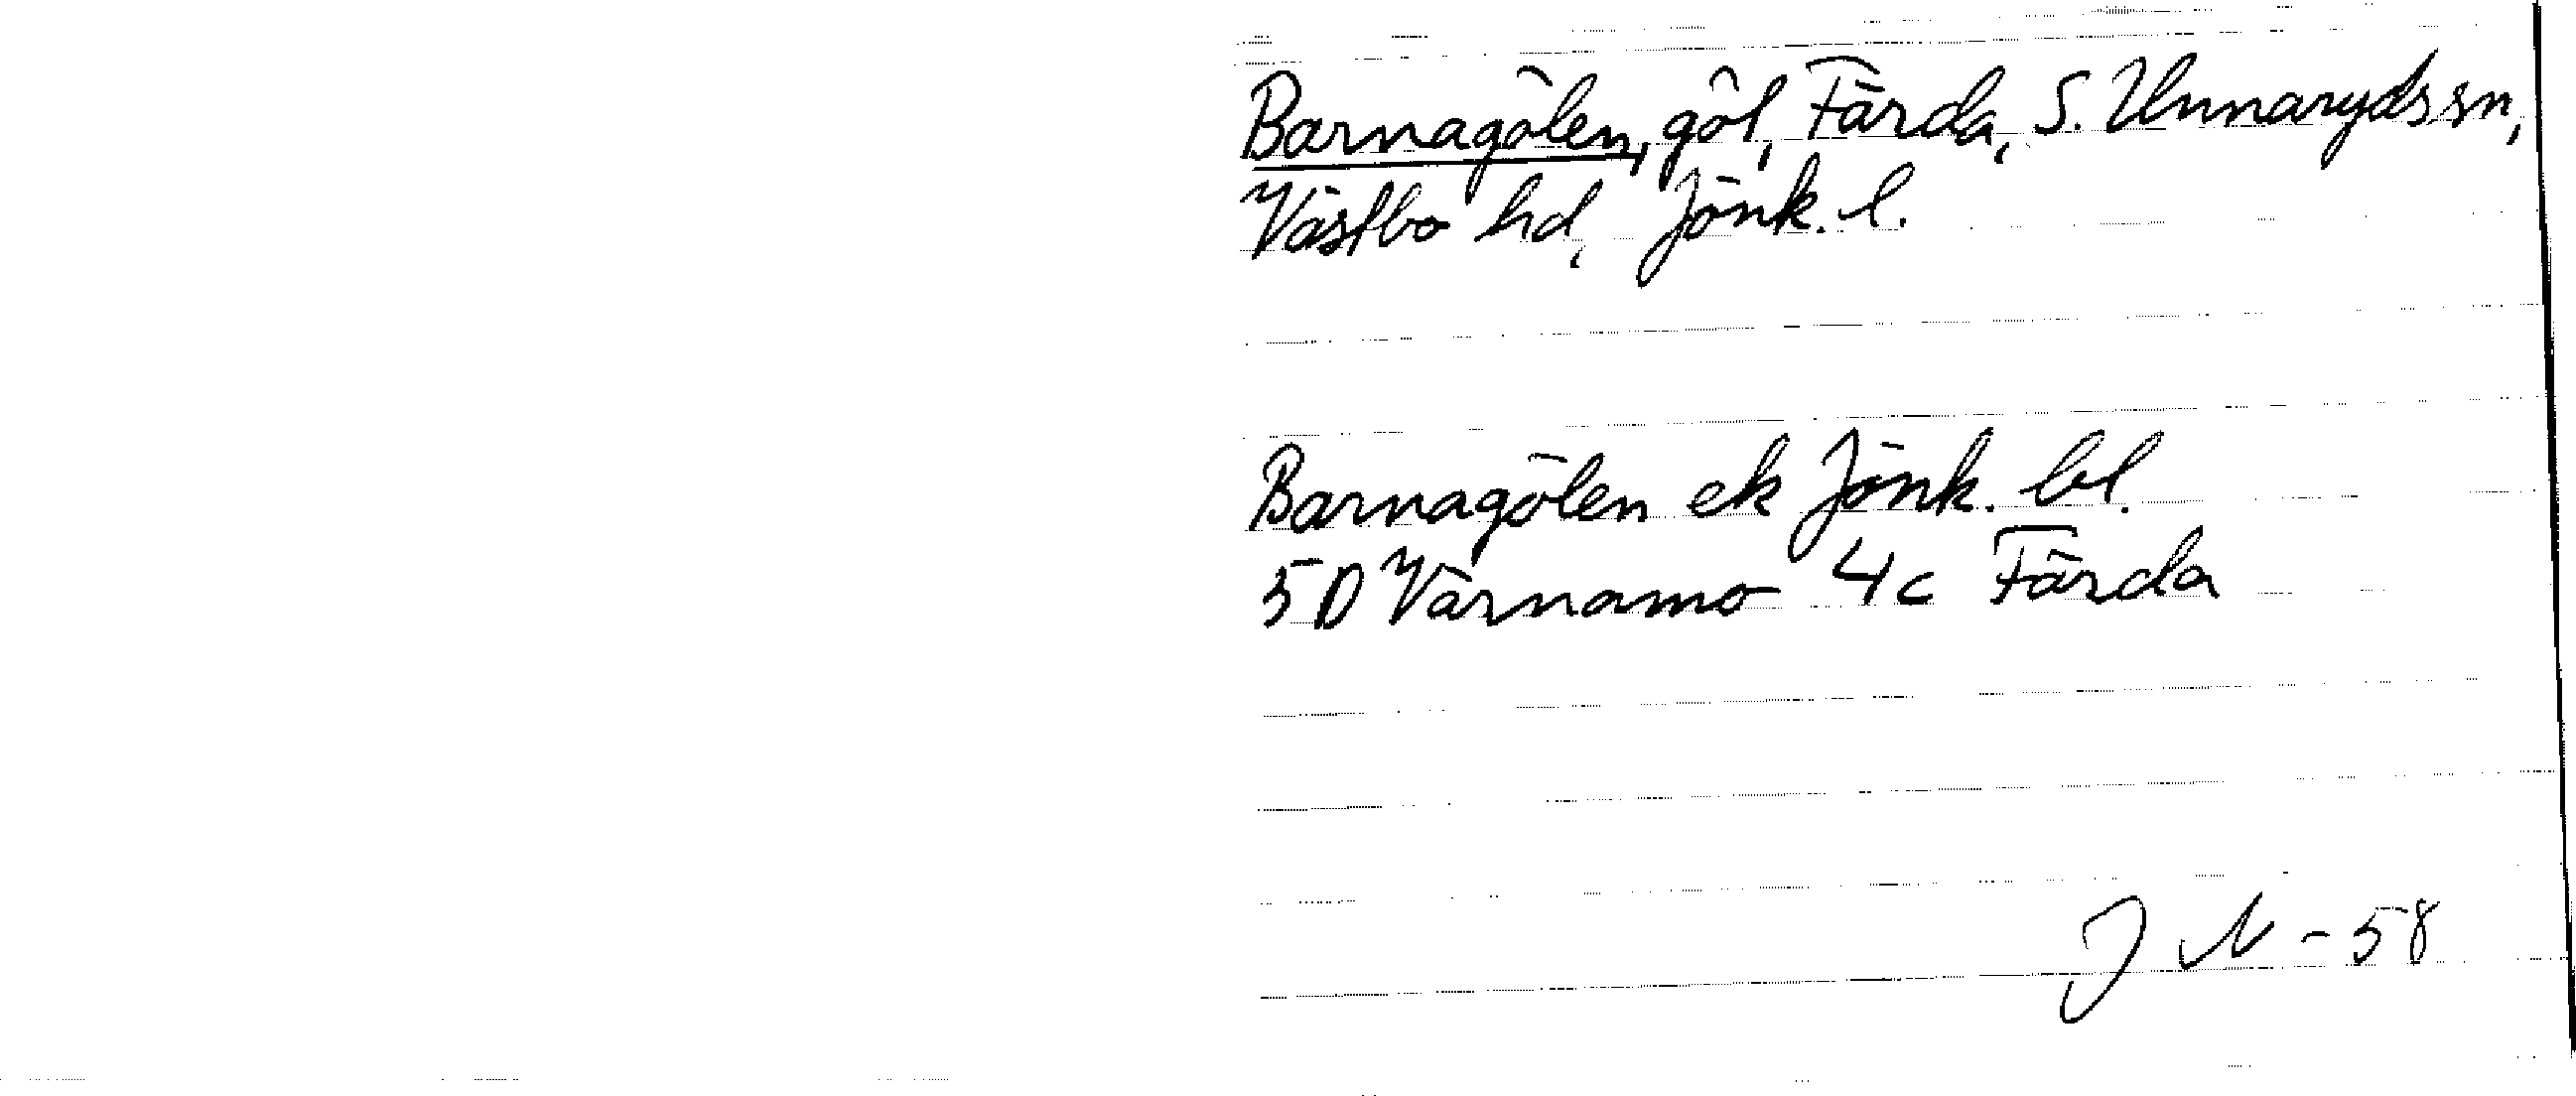 Barnagölen, göl, Färda, S. Unnaryds sn,
Västbo hd, Jönk. l.
Barnagölen ek Jönk. bl.
5D Värnamo 4c Färda
J N - 58